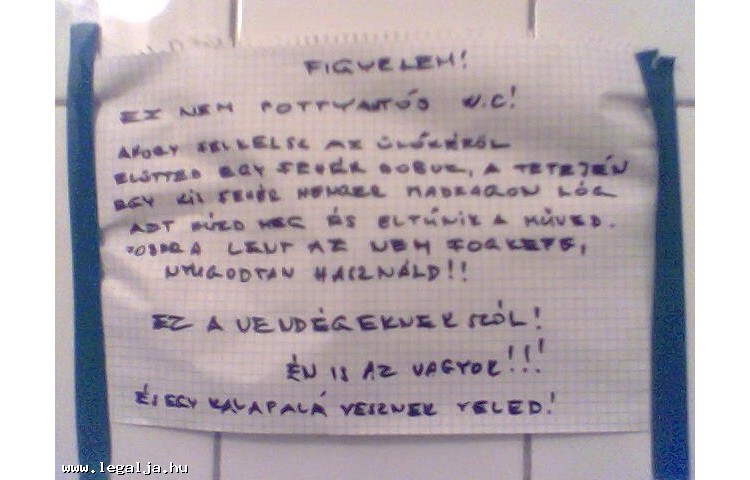 FIGYELEM!
EZ NEM POTTYANTÓS W.C!
AHOGY FELKELSZ AZ ÜLŐKÉRŐL
ELŐTTED EGY FEHÉR DOBOZ, A TETEJÉN
EGY KIS FEHÉR HENGER MADZAGON LÓG
AZT HÚZD MEG ÉS ELTŰNIK A MŰVED.
JOBBRA LENT AZ NEM FORKEFE,
NYUGODTAN HASZNÁLD!!
EZ A VENDÉGEKNEK SZÓL!
ÉN IS AZ VAGYOK!!!
ÉS EGY KALAP ALÁ VESZNEK VELED!
www.legalja.hu